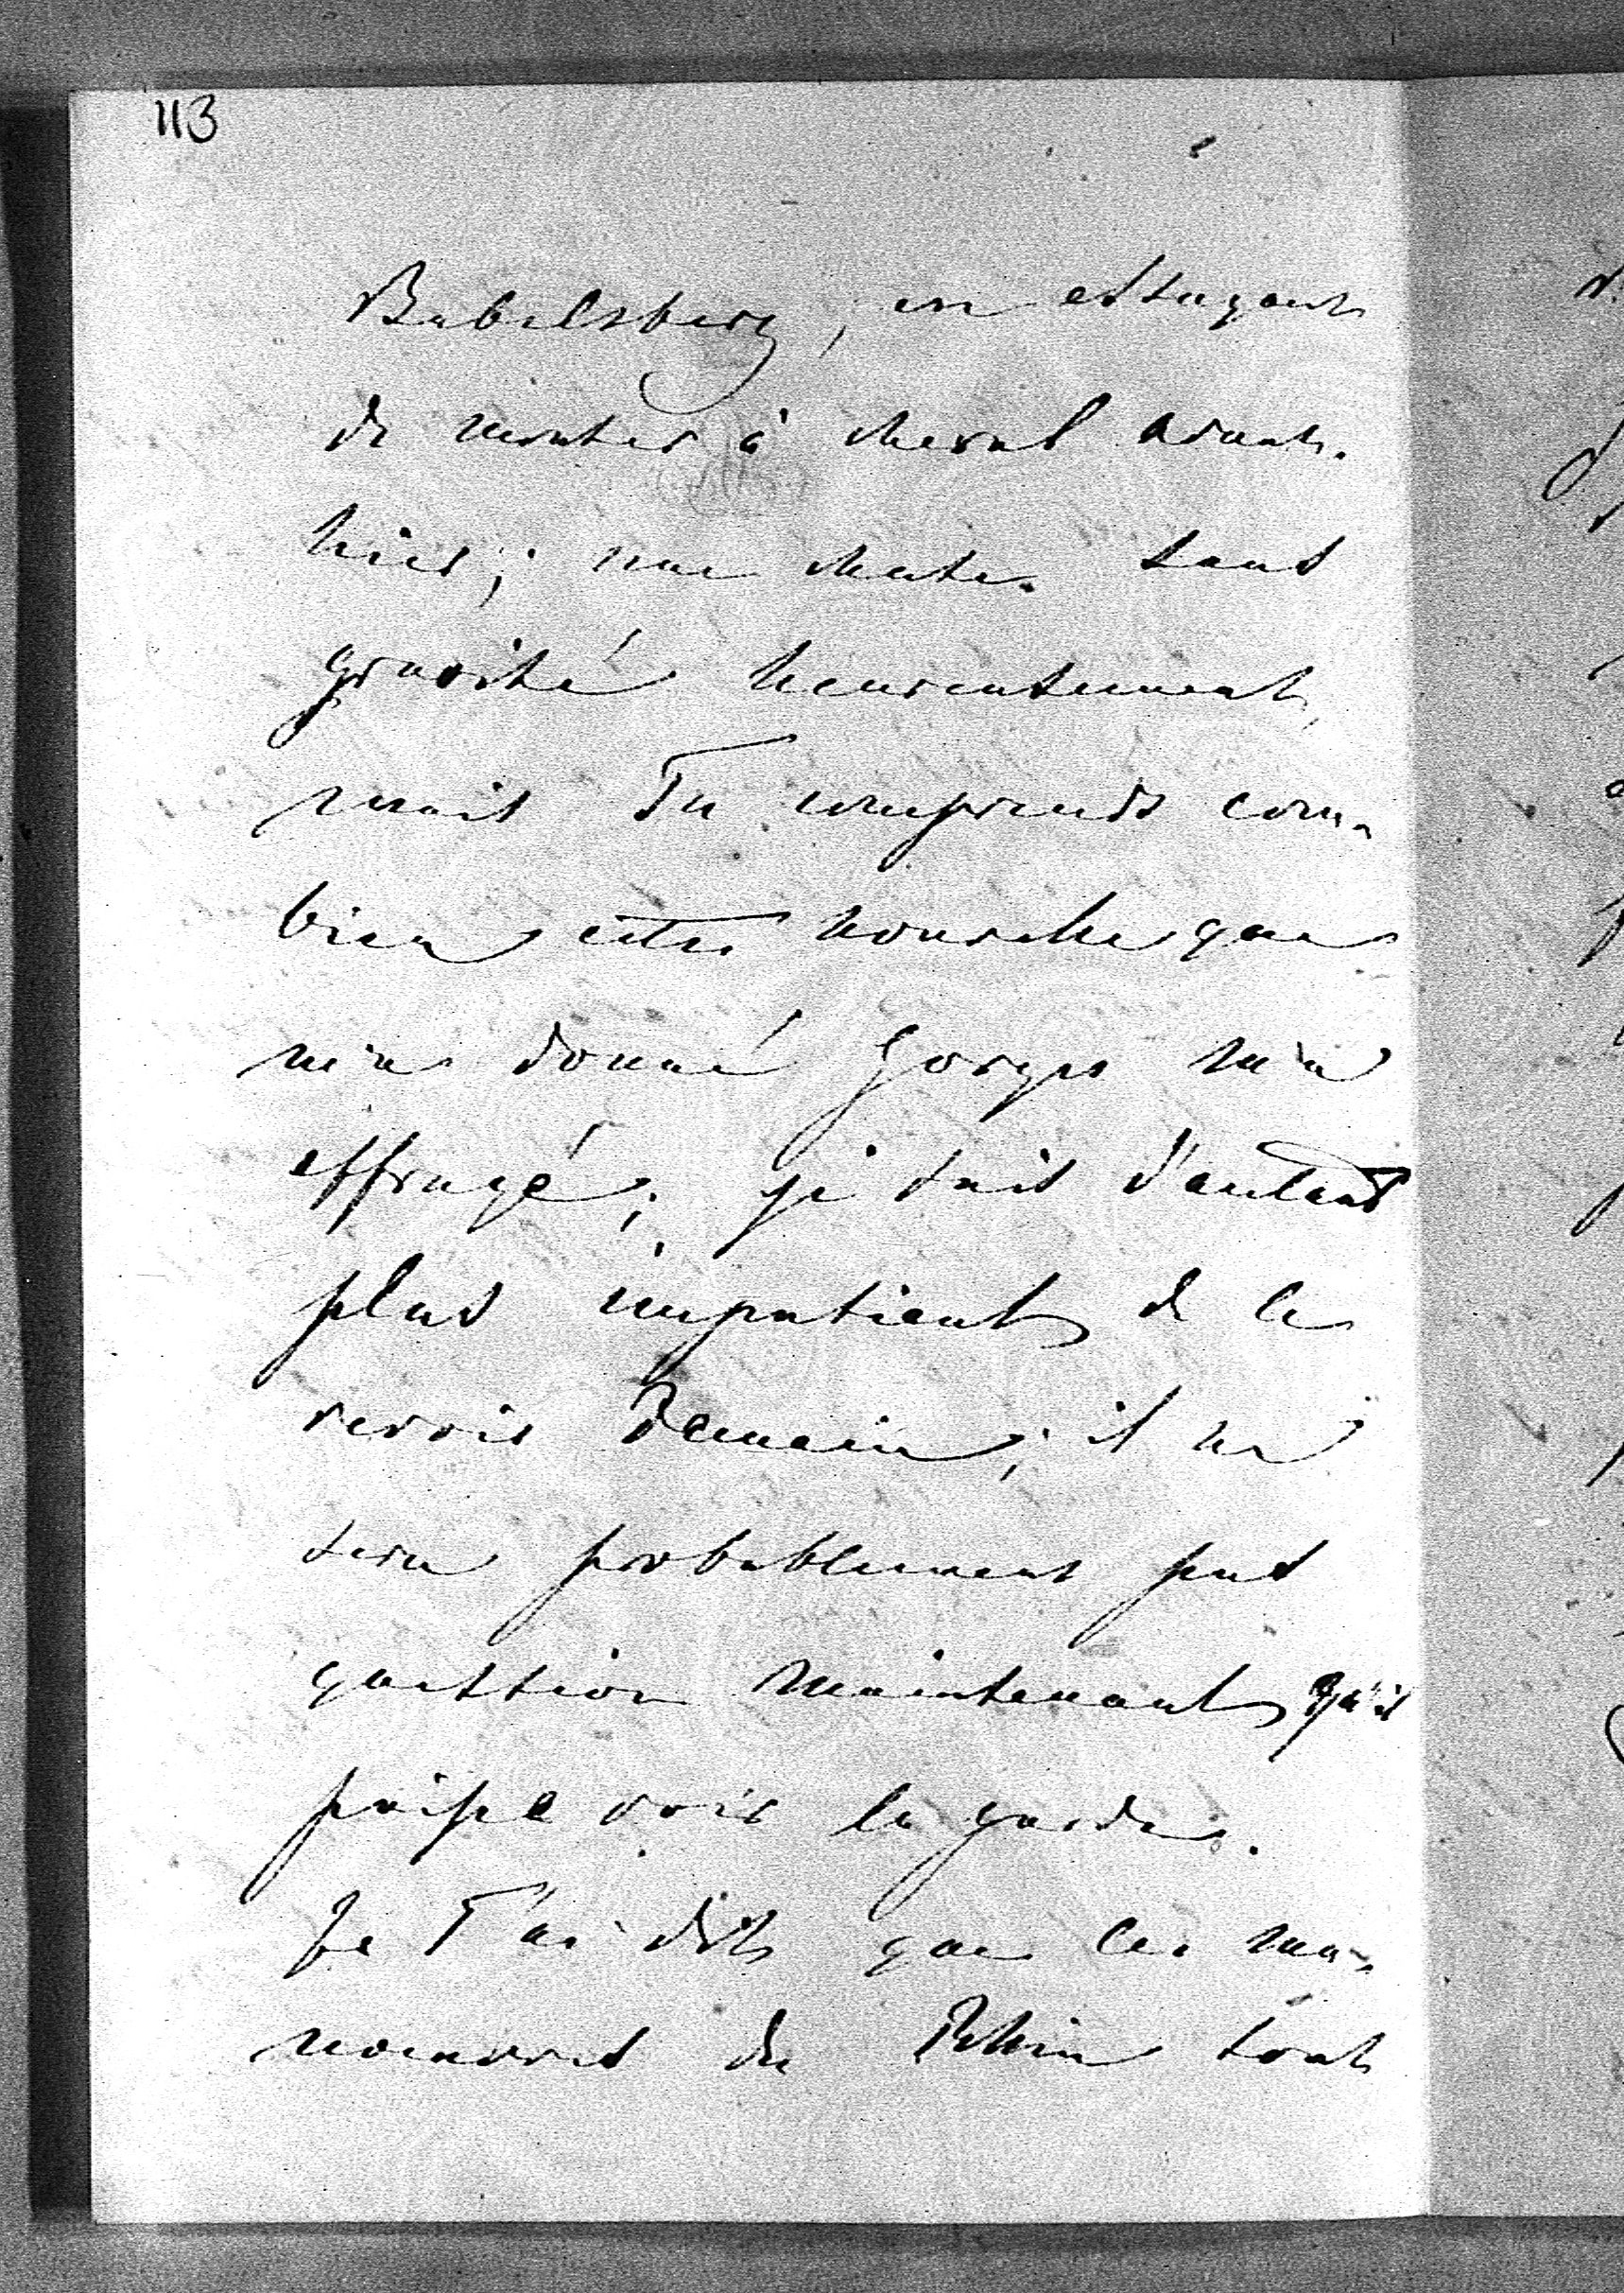 113
Babelsberg, en essayant
de monter à cheval avant-
hier; une chute sans
gravité heureusement,
mais Tu comprends com-
bien cette nouvelle que
m'a donné Goergs m'a
effrayé; je suis d'autant
plus impatient de le
revoir demain; il ne
sera probablement pas
question maintenant qu'il
puisse voir la garde.
Je T'ai dit que les ma-
noeuvres du Rhin sont